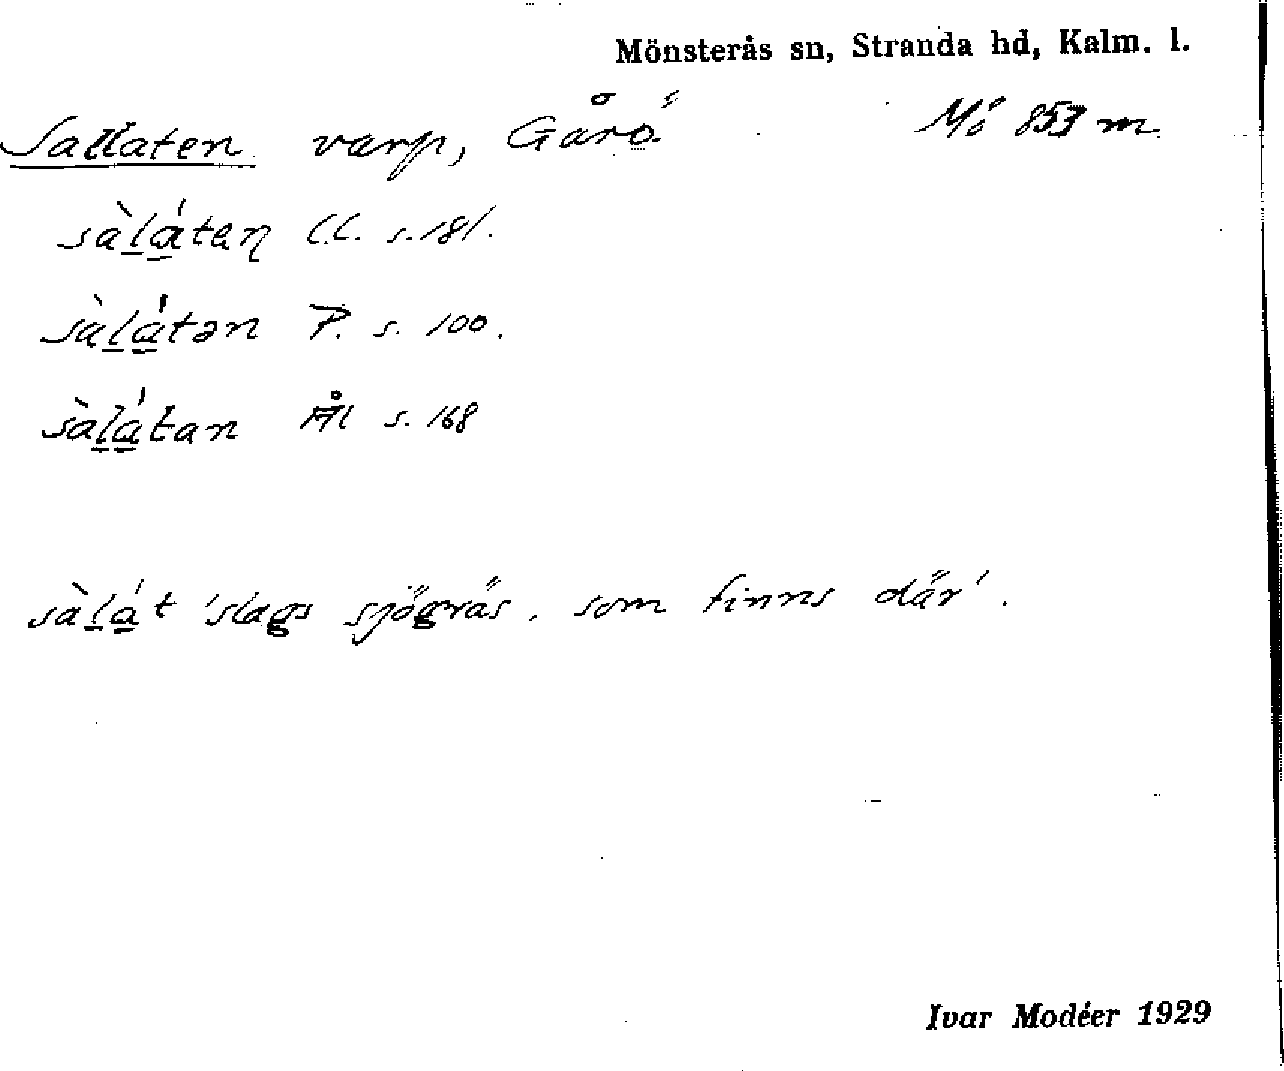 Mönsterås sn, Stranda hd, Kalm. l.
Sallaten varp, Gårö Mö 853 m.
sàláten C.C. s. 181.
sàlátən P. s. 100.
sàlátan Ål s. 168
sàlát 'slags sjögräs, som finns där'.
Ivar Modéer 1929